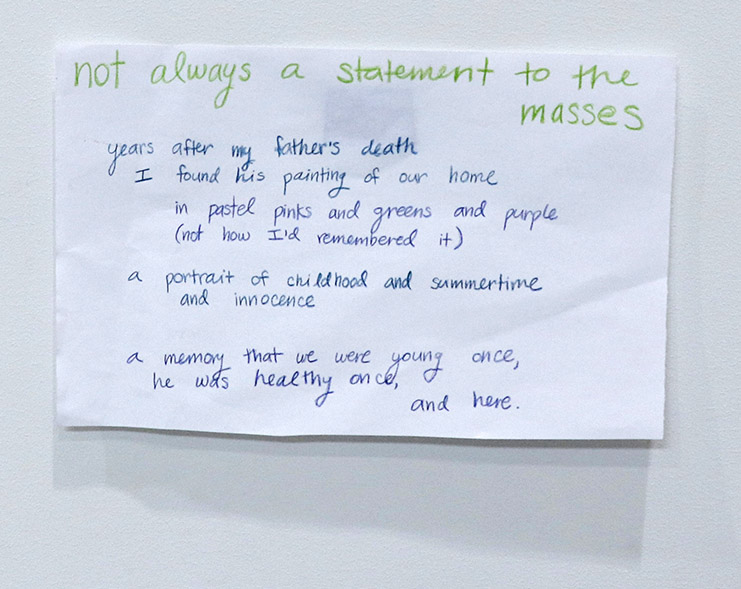 not always a statement to the
masses
years after my father's death
I found his painting of our home
in pastel pinks and greens and purple
(not how I'd remembered it)
a portrait of childhood and summertime
and innocence
a memory that we were young once,
he was healthy once,
and here.